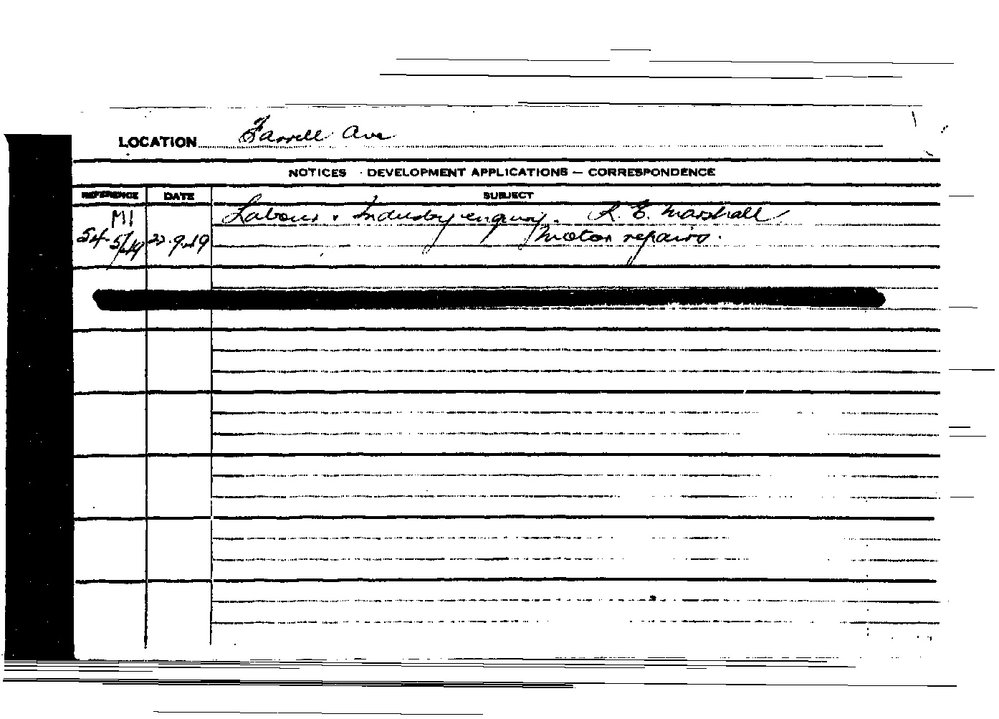 LOCATION Farrell Ave
NOTICES · DEVELOPMENT APPLICATIONS — CORRESPONDENCE
REFERENCE DATE SUBJECT
MI Labour & Industry enquiry. R. E. Marshall
54·5/49 22·9·49 Motor repairs.